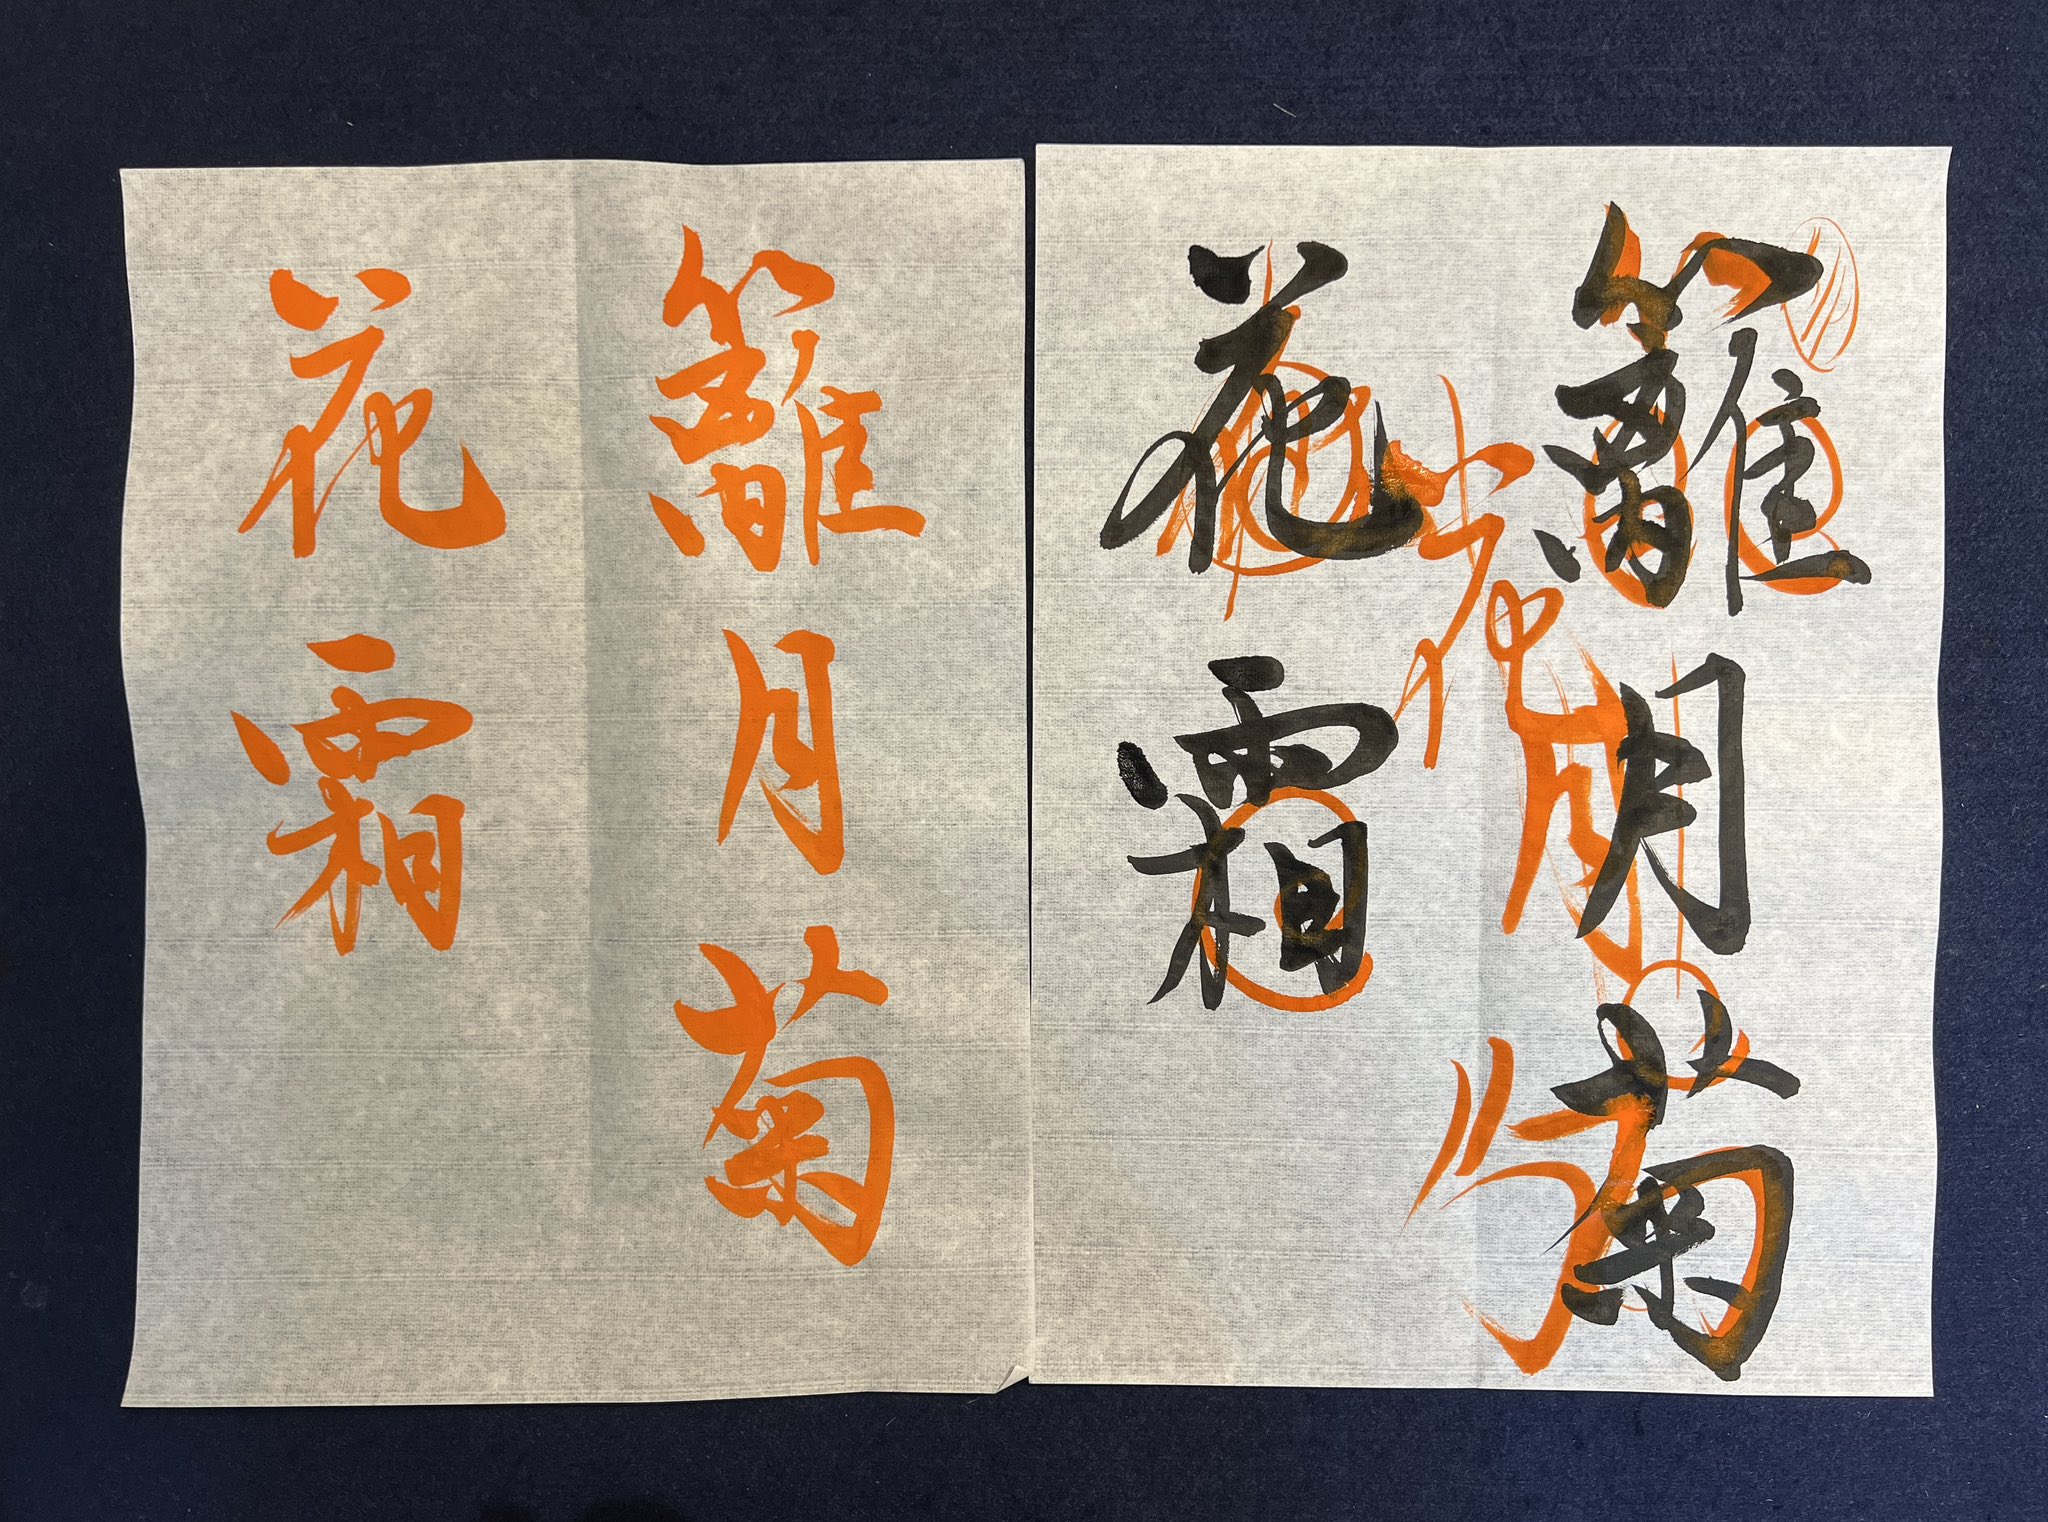 籬月菊
花月
花霜
籬月菊
花霜